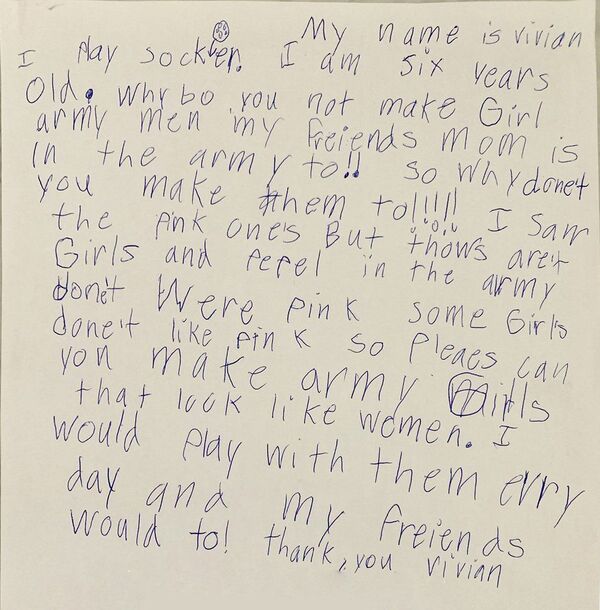 My name is vivian
I play socker. I am six years
Old. Why bo you not make Girl
army men my freiends mom is
in the army to!! so why donet
you make them to!!!!! I saw
the pink ones But thows aret
Girls and pepel in the army
donet Were pink some Girls
donet like pink so pleaes can
you make army Girls
that look like women. I
would play with them evry
day and my freiends
would to! thank, you vivian